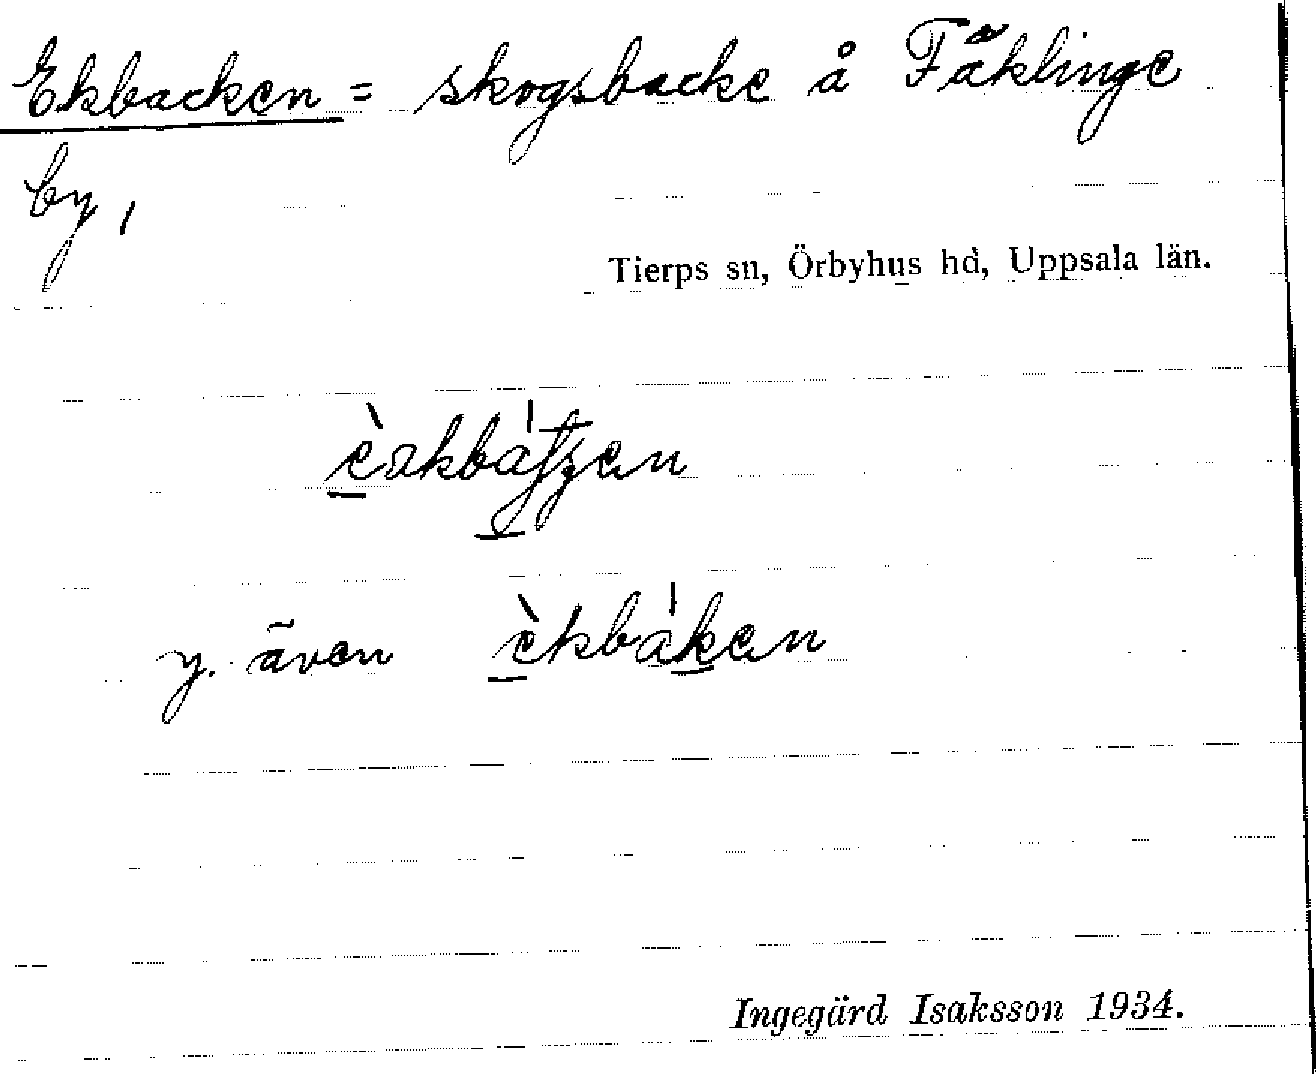 Ekbacken = skogsbacke å Fäklinge
by,
Tierps sn, Örbyhus hd, Uppsala län.
y. även èkbàken
Ingegärd Isaksson 1934.